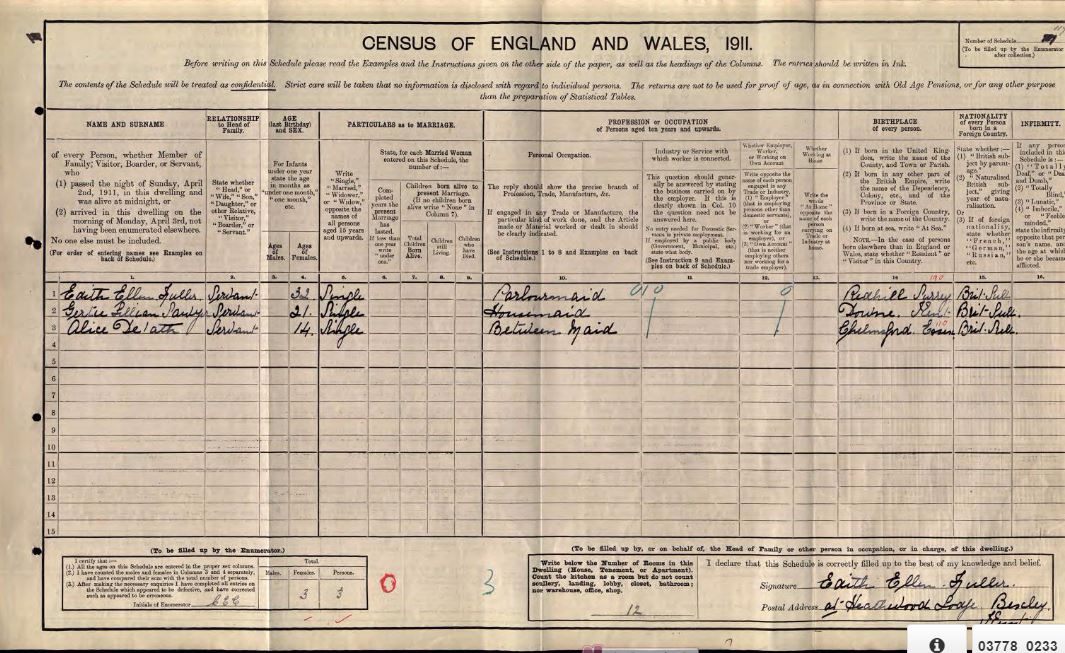 CENSUS OF ENGLAND AND WALES, 1911.
Number of Schedule
(To be filled up by the Enumerator after collection.)
Before writing on this Schedule please read the Examples and the Instructions given on the other side of the paper, as well as the headings of the Columns. The entries should be written in Ink.
The contents of the Schedule will be treated as confidential. Strict care will be taken that no information is disclosed with regard to individual persons. The returns are not to be used for proof of age, as in connection with Old Age Pensions, or for any other purpose
than the preparation of Statistical Tables.
NAME AND SURNAME
RELATIONSHIP to Head of Family.
AGE (last Birthday) and SEX.
PARTICULARS as to MARRIAGE.
PROFESSION or OCCUPATION
of Persons aged ten years and upwards.
BIRTHPLACE
of every person.
NATIONALITY of every Person born in a Foreign Country.
INFIRMITY.
of every Person, whether Member of
Family, Visitor, Boarder, or Servant,
who
(1) passed the night of Sunday, April
2nd, 1911, in this dwelling and
was alive at midnight, or
(2) arrived in this dwelling on the
morning of Monday, April 3rd, not
having been enumerated elsewhere.
No one else must be included.
(For order of entering names see Examples on
back of Schedule.)
State whether "Head," or "Wife," "Son," "Daughter," or other Relative, "Visitor," "Boarder," or "Servant."
For Infants under one year state the age in months as "under one month," "one month," etc.
Ages of Males.
Ages of Females.
Write "Single," "Married," "Widower," or "Widow," opposite the names of all persons aged 15 years and upwards.
State, for each Married Woman entered on this Schedule, the number of:—
Completed years the present Marriage has lasted. If less than one year write "under one."
Children born alive to present Marriage. (If no children born alive write "None" in Column 7).
Total Children Born Alive.
Children still Living.
Children who have Died.
Personal Occupation.
The reply should show the precise branch of Profession, Trade, Manufacture, &c.
If engaged in any Trade or Manufacture, the particular kind of work done, and the Article made or Material worked or dealt in should be clearly indicated.
(See Instructions 1 to 8 and Examples on back of Schedule.)
Industry or Service with which worker is connected.
This question should generally be answered by stating the business carried on by the employer. If this is clearly shown in Col. 10 the question need not be answered here.
No entry needed for Domestic Servants in private employment. If employed by a public body (Government, Municipal, etc.) state what body.
(See Instruction 9 and Examples on back of Schedule.)
Whether Employer, Worker, or Working on Own Account.
Whether Working at Home.
(1) If born in the United Kingdom, write the name of the County, and Town or Parish.
(2) If born in any other part of the British Empire, write the name of the Dependency, Colony, etc., and of the Province or State.
(3) If born in a Foreign Country, write the name of the Country.
(4) If born at sea, write "At Sea."
NOTE.—In the case of persons born elsewhere than in England or Wales, state whether "Resident" or "Visitor" in this Country.
1. 2. 3. 4. 5. 6. 7. 8. 9. 10. 11. 12. 13. 14. 15. 16.
1 Edith Ellen Fuller Servant 32 Single Parlourmaid 010 0 Redhill Surrey
2 Gertie Lillian Servant 21. Single Housemaid Downe. Kent
3 Alice Servant 14. Single Between Maid Chelmsford. Essex
4
5
6
7
8
9
10
11
12
13
14
15
(To be filled up by the Enumerator.)
I certify that:—
(1.) All the ages on this Schedule are entered in the proper sex columns.
(2.) I have counted the males and females in Columns 3 and 4 separately, and have compared their sum with the total number of persons.
(3.) After making the necessary enquiries I have completed all entries on the Schedule which appeared to be defective, and have corrected such as appeared to be erroneous.
Initials of Enumerator
Total.
Males. Females. Persons.
3 3
0
3
(To be filled up by, or on behalf of, the Head of Family or other person in occupation, or in charge, of this dwelling.)
Write below the Number of Rooms in this Dwelling (House, Tenement, or Apartment). Count the kitchen as a room but do not count scullery, landing, lobby, closet, bathroom; nor warehouse, office, shop.
12
I declare that this Schedule is correctly filled up to the best of my knowledge and belief.
Signature Edith Ellen Fuller.
Postal Address at Heathwood Lodge Bexley
03778 0233